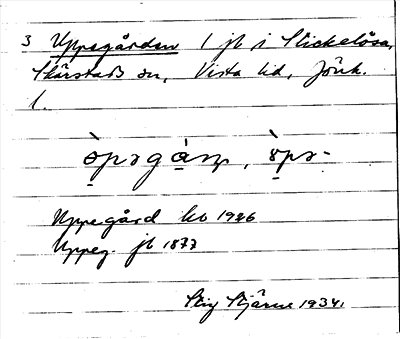 3 Uppegården 1 jb i Stickelösa,
Skärstads sn, Vista hd, Jönk.
l.
Uppegård ko 1926
Uppeg. jb 1877
Stig Stjärne 1934.